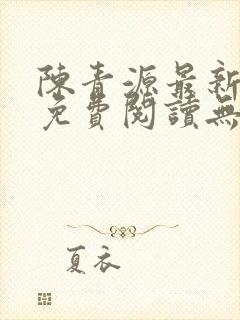 陳青源最新
免費閱讀無
夏衣